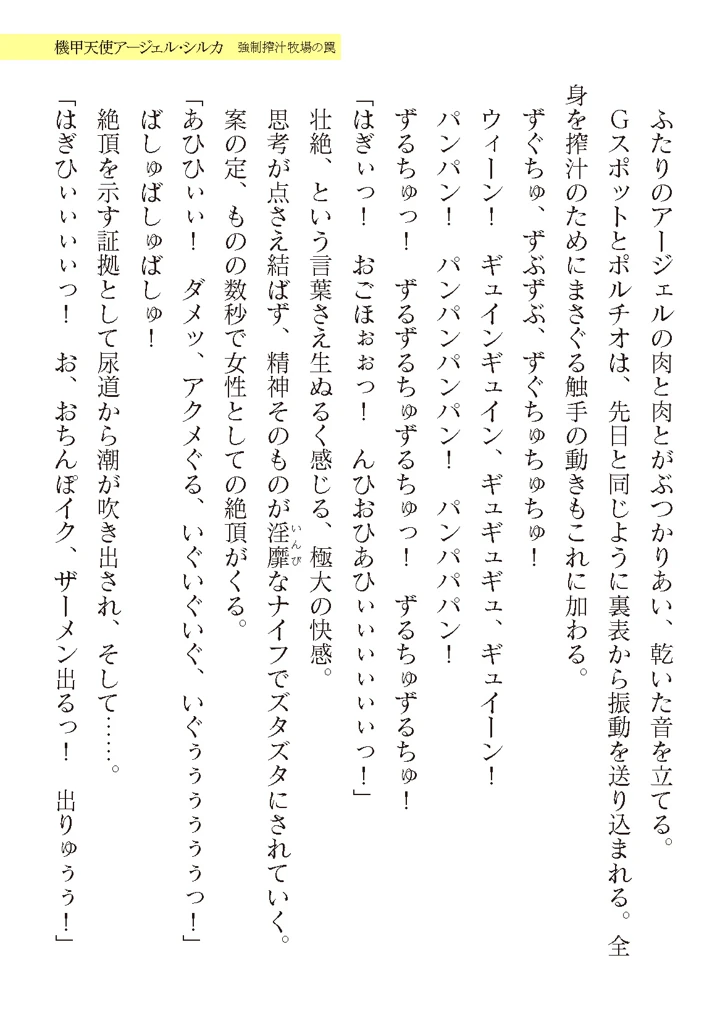 機甲天使アージェル・シルカ　強制搾汁牧場の罠
ふたりのアージェルの肉と肉とがぶつかりあい、乾いた音を立てる。
Gスポットとポルチオは、先日と同じように裏表から振動を送り込まれる。全
身を搾汁のためにまさぐる触手の動きもこれに加わる。
ずぐちゅ、ずぶずぶ、ずぐちゅちゅちゅ！
ウィーン！　ギュインギュイン、ギュギュギュ、ギュイーン！
パンパン！　パンパンパンパン！　パンパパパン！
ずるちゅっ！　ずるずるちゅずるちゅっ！　ずるちゅずるちゅ！
「はぎぃっ！　おごほぉぉっ！　んひおひあひぃぃぃぃぃぃっ！」
壮絶、という言葉さえ生ぬるく感じる、極大の快感。
思考が点さえ結ばず、精神そのものが淫靡いんびなナイフでズタズタにされていく。
案の定、ものの数秒で女性としての絶頂がくる。
「あひひぃぃ！　ダメッ、アクメぐる、いぐいぐいぐ、いぐぅぅぅぅぅぅっ！」
ばしゅばしゅばしゅ！
絶頂を示す証拠として尿道から潮が吹き出され、そして……。
「はぎひぃぃぃぃっ！　お、おちんぽイク、ザーメン出るっ！　出りゅぅぅ！」